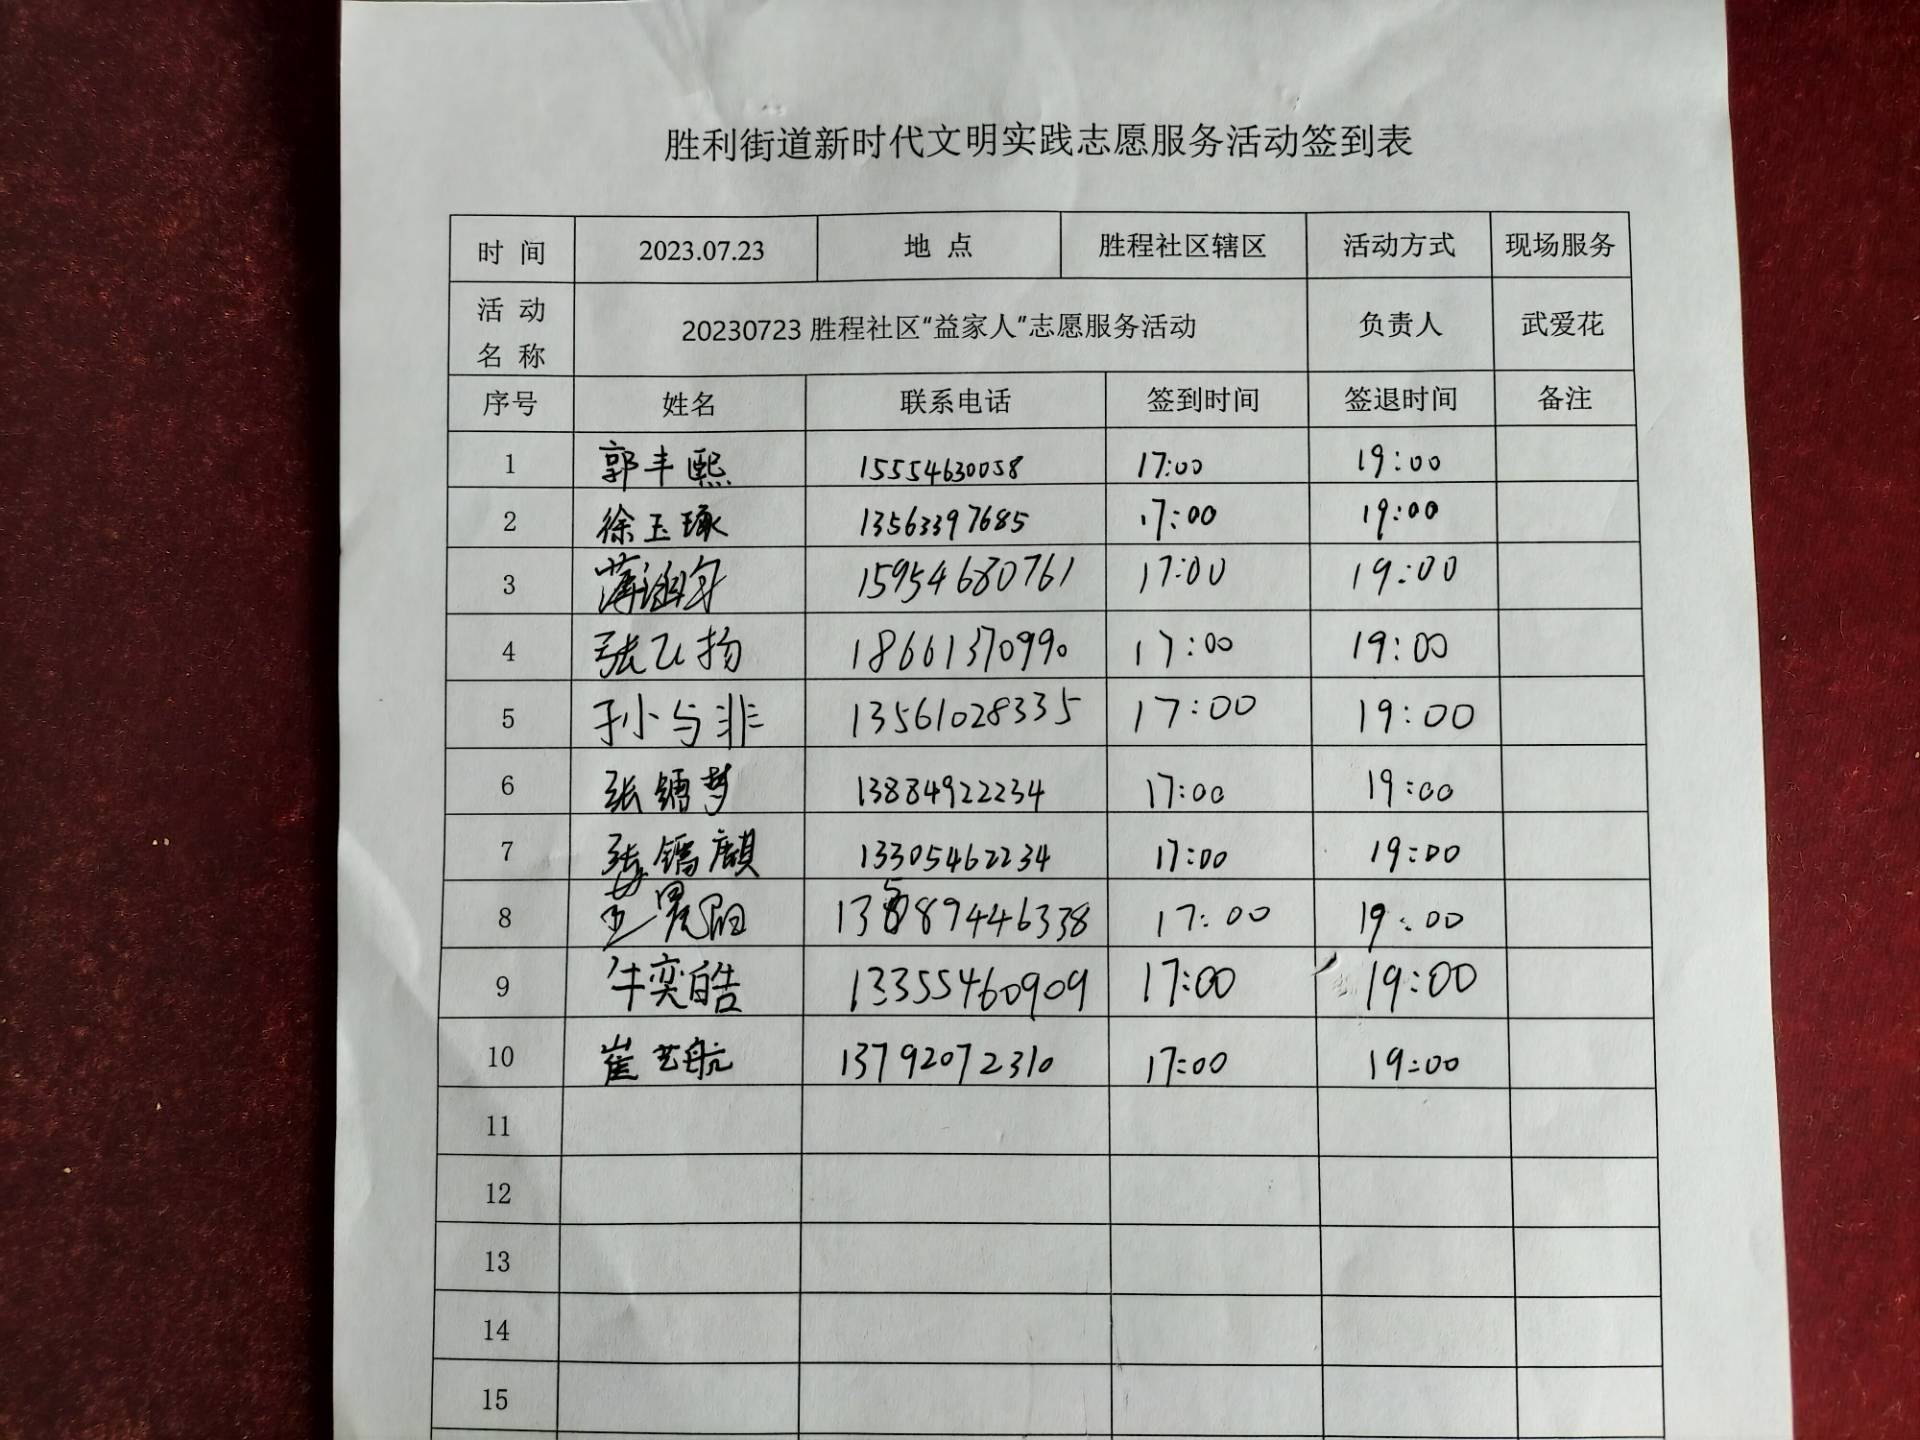 胜利街道新时代文明实践志愿服务活动签到表
时 间 2023.07.23 地 点 胜程社区辖区 活动方式 现场服务
活 动 名 称 20230723 胜程社区“益家人”志愿服务活动 负责人 武爱花
序号 姓名 联系电话 签到时间 签退时间 备注
1 郭丰熙 15554630058 17:00 19:00
2 徐玉琢 13563397685 17:00 19:00
3 15954680761 17:00 19:00
4 张飞扬 18661370990 17:00 19:00
5 孙与非 13561028335 17:00 19:00
6 张镭梦 13884922234 17:00 19:00
7 张镭麒 13305462234 17:00 19:00
8 17:00 19:00
9 牛奕皓 13355460909 17:00 19:00
10 崔艺航 13792072310 17:00 19:00
11
12
13
14
15